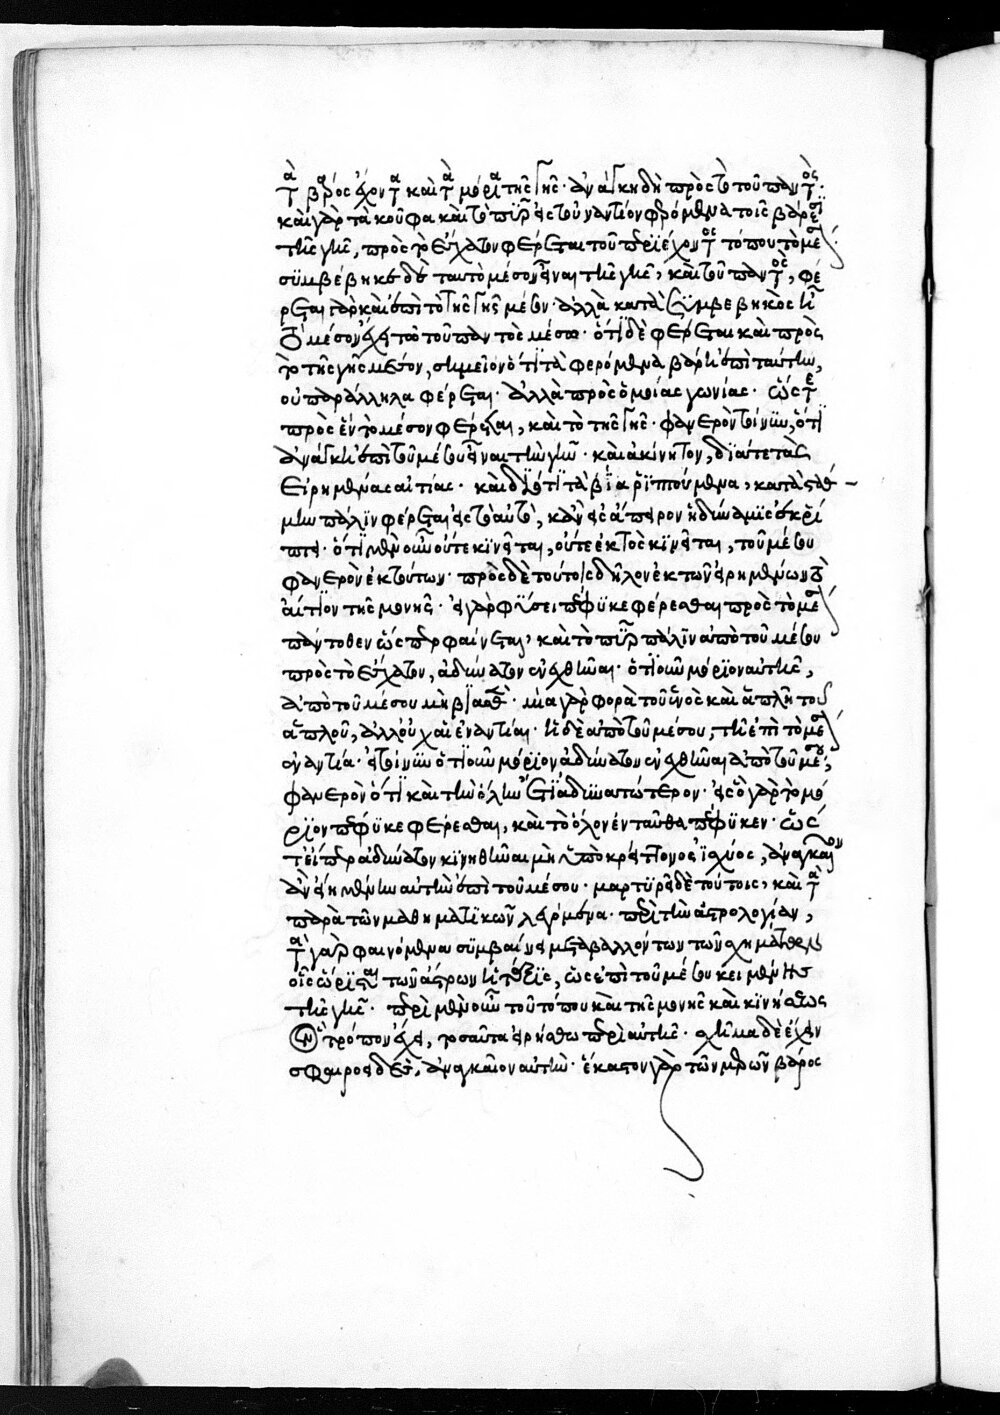 τὰ βάρος ἔχοντα καὶ τὰ μόρια τῆς γῆς· ἀνάγκη δὴ πρὸς τὸ τοῦ παντός·
καὶ γὰρ τὰ κοῦφα καὶ τὸ πῦρ εἰς τοὐναντίον φερόμενα τοῖς βάρεσι
τῆς γῆς, πρὸς τὸ ἔσχατον φέρεται τοῦ περιέχοντος τόπου τὸ μέσον·
συμβέβηκε δὲ ταυτὸ μέσον εἶναι τῆς γῆς, καὶ τοῦ παντός, φέ
ρεται γὰρ καὶ ἐπὶ τὸ τῆς γῆς μέσον· ἀλλὰ κατὰ συμβεβηκὸς ᾗ
τὸ μέσον ἔχει τὸ τοῦ παντὸς μέσω· ὅτι δὲ φέρεται καὶ πρὸς
τὸ τῆς γῆς μέσον, σημεῖον ὅτι τὰ φερόμενα βάρη ἐπὶ ταύτην,
οὐ παράλληλα φέρεται· ἀλλὰ πρὸς ὁμοίας γωνίας· ὥστε
πρὸς ἓν τὸ μέσον φέρεται, καὶ τὸ τῆς γῆς· φανερὸν τοίνυν, ὅτι
ἀνάγκη ἐπὶ τοῦ μέσου εἶναι τὴν γῆν· καὶ ἀκίνητον, διά τε τὰς
εἰρημένας αἰτίας· καὶ διότι τὰ βία ῥιπτούμενα, κατὰ στάθ
μην πάλιν φέρεται εἰς τὸ αὐτὸ, κἂν εἰς ἄπειρον ἡ δύναμις ἐκρί
πτει· ὅτι μὲν οὖν οὔτε κινεῖται, οὔτε ἐκτὸς κινεῖται, τοῦ μέσου
φανερὸν ἐκ τούτων· πρὸς δὲ τούτοις δῆλον ἐκ τῶν εἰρημένων τὸ
αἴτιον τῆς μονῆς· εἰ γὰρ φύσει πέφυκε φέρεσθαι πρὸς τὸ μέσον
πάντοθεν ὥσπερ φαίνεται, καὶ τὸ πῦρ πάλιν ἀπὸ τοῦ μέσου
πρὸς τὸ ἔσχατον, ἀδύνατον ἐνεχθῆναι· ὁτιοῦν μόριον αὐτῆς,
ἀπὸ τοῦ μέσου μὴ βιασθέν· μία γὰρ φορὰ τοῦ ἑνὸς καὶ ἁπλῆ τοῦ
ἁπλοῦ, ἀλλ' οὐχ αἱ ἐναντίαι· ἡ δὲ ἀπὸ τοῦ μέσου, τῆ ἐπὶ τὸ μέσον
ἐναντία· εἰ τοίνυν ὁτιοῦν μόριον ἀδύνατον ἐνεχθῆναι ἀπὸ τοῦ μέσου,
φανερὸν ὅτι καὶ τὴν ὅλην ἔτι ἀδυνατώτερον· εἰς ὃ γὰρ τὸ μό
ριον πέφυκε φέρεσθαι, καὶ τὸ ὅλον ἐνταῦθα πέφυκεν· ὥστ
εἴπερ ἀδύνατον κινηθῆναι μὴ ὑπὸ κρείττονος ἰσχύος, ἀναγκαῖον
ἂν εἴη μένειν αὐτὴν ἐπὶ τοῦ μέσου· μαρτυρεῖ δὲ τούτοις, καὶ τὰ
παρὰ τῶν μαθηματικῶν λεγόμενα· περὶ τὴν ἀστρολογίαν,
τὰ γὰρ φαινόμενα συμβαίνει μεταβαλλόντων τῶν σχημάτων
οἷς ὥρισται τῶν ἄστρων ἡ τάξις, ὡς ἐπὶ τοῦ μέσου κειμένης
τῆς γῆς· περὶ μὲν οὖν τοῦ τόπου καὶ τῆς μονῆς καὶ κινήσεως
ὃν τρόπον ἔχει, τοσαῦτα εἰρήσθω περὶ αὐτῆς· σχῆμα δὲ ἔχειν
σφαιροειδὲς, ἀναγκαῖον αὐτὴν· ἕκαστον γὰρ τῶν μερῶν βάρος